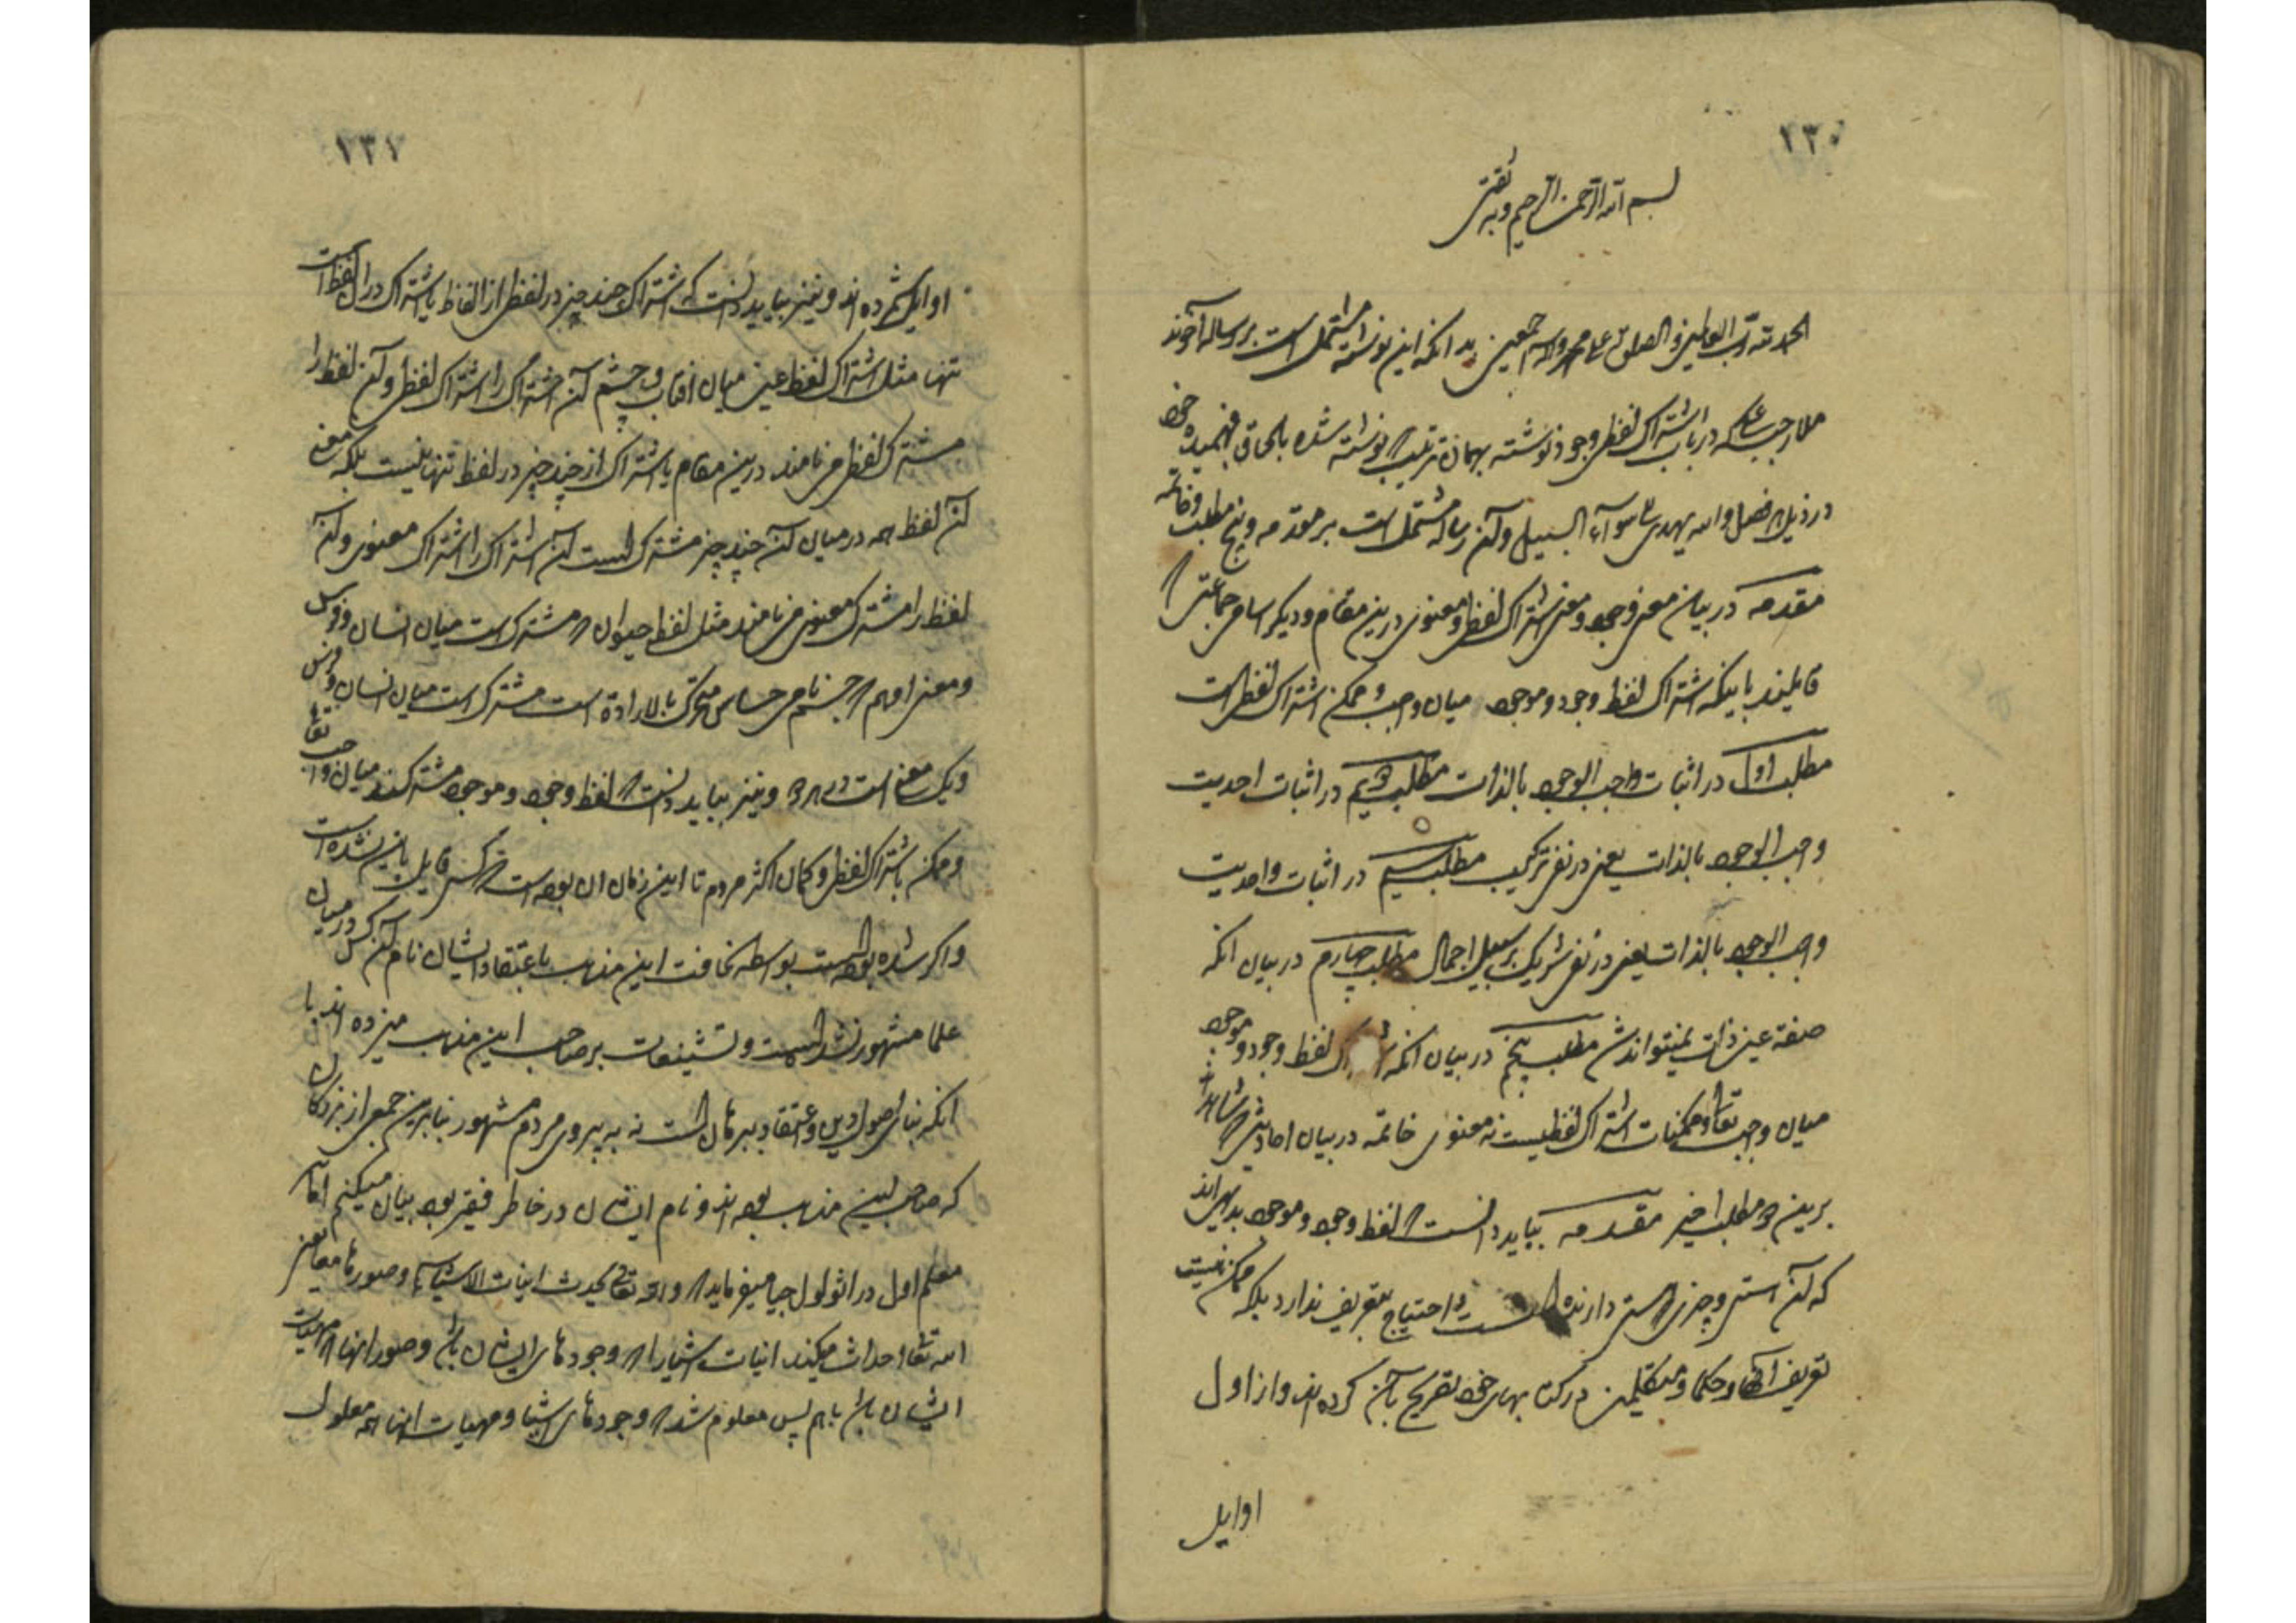 ۱۳۰
بسم الله الرحمن الرحیم وبه ثقتی
الحمد لله رب العالمین و الصلوة علی محمد واله اجمعین بدانکه این نوشته مشتملست بر رساله آخوند
ملا رجبعلی که در باب اشتراک لفظی وجود نوشته بهمان ترتیب که نوشته شده بالحاق فهمیده خود
در ذیل هر فصل والله یهدی الی سواء السبیل و آن رساله مشتمل است بر مقدمه و پنج مطلب و خاتمه
مقدمه در بیان معنی وجود و معنی اشتراک لفظی و معنوی درین مقام و دیگر اسامی جماعتی که
قایلند باینکه اشتراک لفظ وجود و موجود میان واجب و ممکن اشتراک لفظی است
مطلب اول در اثبات واجب الوجود بالذات مطلب دویم در اثبات احدیت
واجب الوجود بالذات یعنی در نفی ترکیب مطلب سیم در اثبات واحدیت
واجب الوجود بالذات یعنی در نفی شریک بر سبیل اجمال مطلب چهارم در بیان انکه
صفة عین ذات نمیتواند شد مطلب پنجم در بیان انکه اشتراک لفظ وجود و موجود
میان واجب تعالی و ممکنات اشتراک لفظیست نه معنوی خاتمه در بیان احادیثی که شاهدند
برین دو مطلب اخیر مقدمه بباید دانست که لفظ وجود و موجود بدیهی اند
که آن هستی و چیزی هستی دارنده است و احتیاج بتعریف ندارد بلکه ممکن نیست
تعریف انها و حکما و متکلمین در کتابهای خود تصریح بآن کرده اند و از اول
اوایل
۱۳۱
اوایل شمرده اند و نیز بباید دانست که اشتراک چند چیز در لفظی از الفاظ یا اشتراک در آن لفظ است
تنها مثل اشتراک لفظ عین میان افتاب و چشم آن اشتراک را اشتراک لفظی و آن لفظ را
مشترک لفظی می نامند درین مقام یا اشتراک ان چند چیز در لفظ تنها نیست بلکه معنی
آن لفظ هم در میان آن چند چیز مشترک است آن اشتراک را اشتراک معنوی و آن
لفظ را مشترک معنوی می نامند مثل لفظ حیوان که مشترک است میان انسان و فرس
و معنی او هم که جسم نامی حساس متحرک بالاراده است مشترک است میان انسان و فرس
و یک معنی است در هر دو و نیز بباید دانست که لفظ وجود و موجود مشترکند میان واجب تعالی
و ممکن باشتراک لفظی و گمان اکثر مردم تا این زمان ان بوده است که کسی قایل باین نشده است
و اگر شده بوده است بواسطه سخافت این مذهب باعتقاد ایشان نام آن کس در میان
علما مشهور نشده است و تشنیعات بر صاحب این مذهب میزده اند با
انکه بنای اصول دین و اعتقاد ببرهان است نه به پیروی مردم مشهور بنابرین جمعی از بزرگان
که صاحب این مذهب بوده اند و نام ایشان در خاطر فقیر بود بیان میکنم اما
معلم اول در اثولوجیا میفرماید که والله تعالی یحدث انیات الاشیاء و صورها معا یعنی
الله تعالی احداث میکند انیات اشیا را که وجودهای ایشان باشد و صور انها که مهیات
ایشان باشد باهم پس معلوم شد که وجودهای اشیا و مهیات انها همه معلول